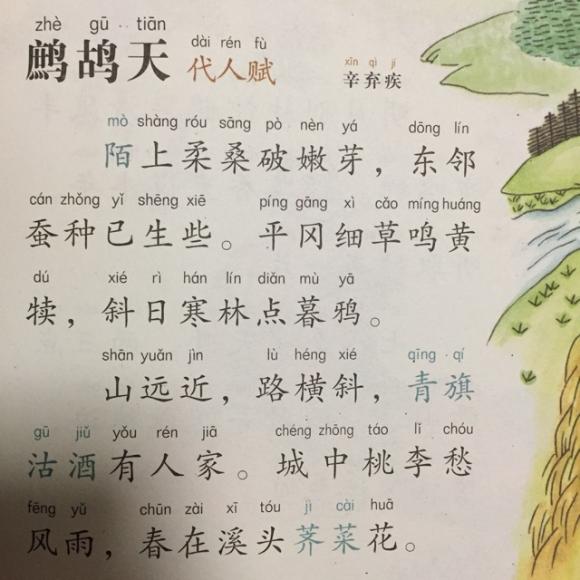 zhè gū tiān
鹧鸪天
dài rén fù
代人赋
xīn qì jí
辛弃疾
mò shàng róu sāng pò nèn yá dōng lín
陌上柔桑破嫩芽，东邻
cán zhǒng yǐ shēng xiē píng gāng xì cǎo míng huáng
蚕种已生些。平冈细草鸣黄
dú xié rì hán lín diǎn mù yā
犊，斜日寒林点暮鸦。
shān yuǎn jìn lù héng xié qīng qí
山远近，路横斜，青旗
gū jiǔ yǒu rén jiā chéng zhōng táo lǐ chóu
沽酒有人家。城中桃李愁
fēng yǔ chūn zài xī tóu jì cài huā
风雨，春在溪头荠菜花。